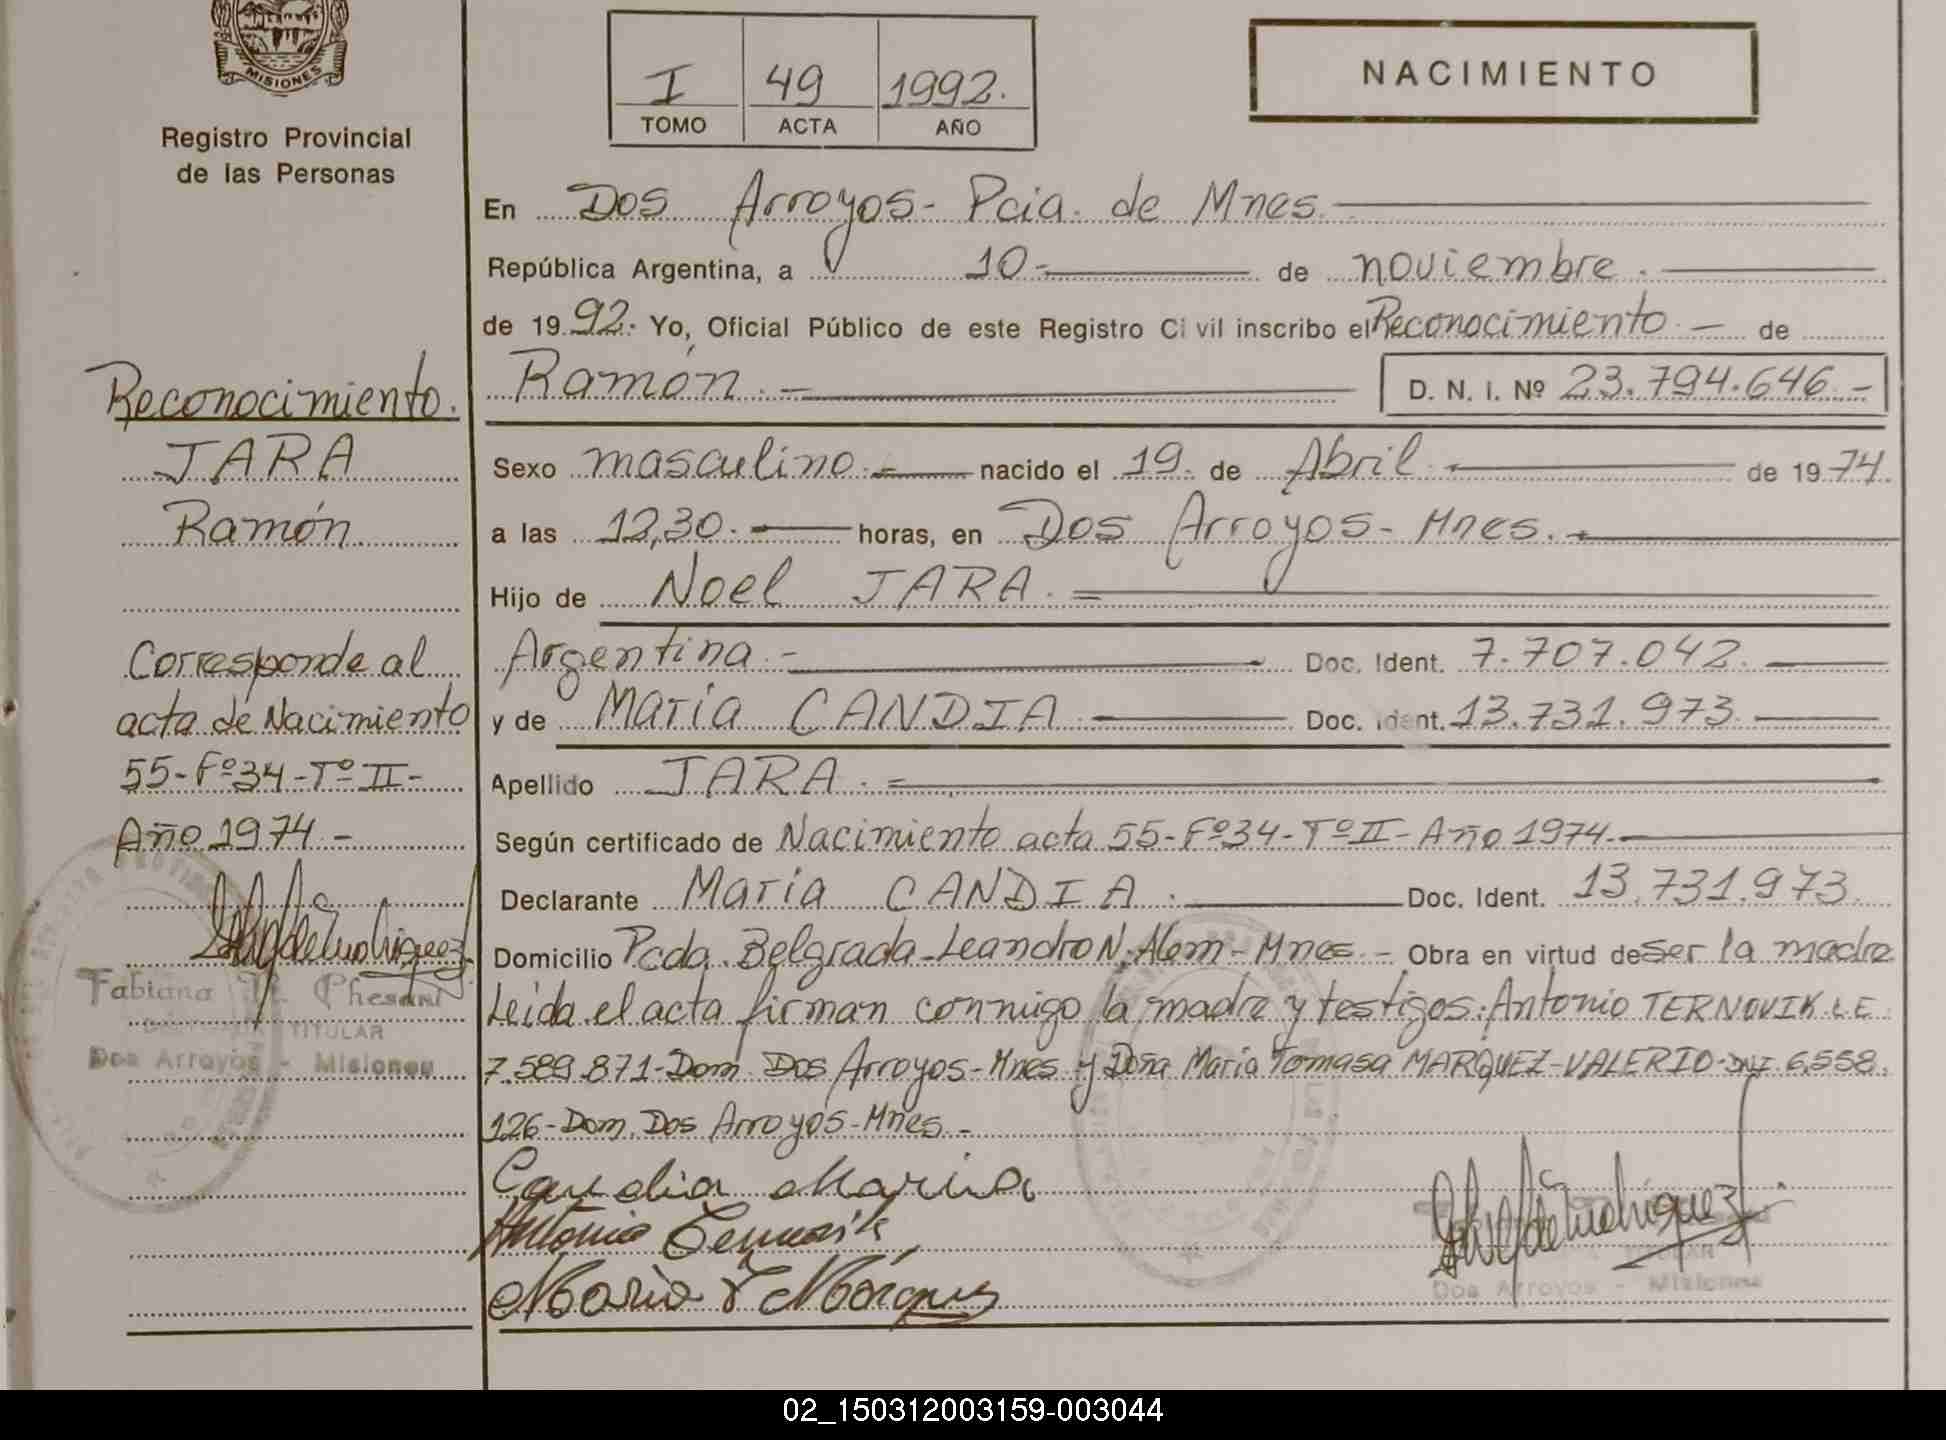 MISIONES
Registro Provincial
de las Personas
I 49 1992.
TOMO ACTA AÑO
NACIMIENTO
En Dos Arroyos - Pcia. de Mnes.
República Argentina, a 10.- de noviembre.
de 1992. Yo, Oficial Público de este Registro Civil inscribo el Reconocimiento.- de
Ramón.- D. N. I. Nº 23.794.646.-
Sexo masculino.- nacido el 19. de Abril.- de 1974.
a las 12,30.- horas, en Dos Arroyos - Mnes.-
Hijo de Noel JARA.-
Argentina.- Doc. Ident. 7.707.042.-
y de María CANDIA.- Doc. Ident. 13.731.973.-
Apellido JARA.-
Según certificado de Nacimiento acta 55-Fº34-TºII-Año 1974.-
Declarante María CANDIA.- Doc. Ident. 13.731.973.
Domicilio Pcda. Belgrada - Leandro N. Alem - Mnes.- Obra en virtud de ser la madre
Leída el acta firman conmigo la madre y testigos: Antonio TERNOVIK L E
7.589.871-Dom. Dos Arroyos-Mnes y Doña María Tomasa MARQUEZ-VALERIO-DNI 6.558.
126-Dom. Dos Arroyos-Mnes.-
Candia Maria
Antonio Ternovik
Maria T Márquez
Reconocimiento.
JARA
Ramón
Corresponde al
acta de Nacimiento
55-Fº34-TºII-
Año 1974.-
Fabiana Chesani
TITULAR
Dos Arroyos - Misiones
TITULAR
Dos Arroyos - Misiones
02_150312003159-003044